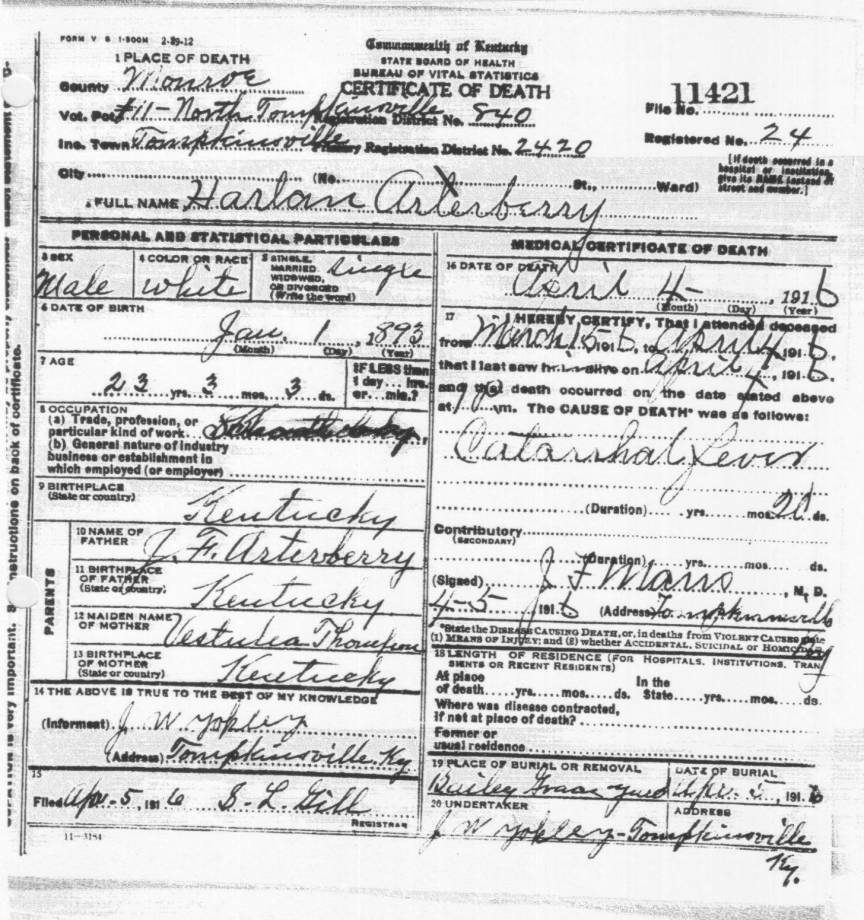 FORM V S 1-500M 2-29-12
Commonwealth of Kentucky
STATE BOARD OF HEALTH
BUREAU OF VITAL STATISTICS
CERTIFICATE OF DEATH
1 PLACE OF DEATH
County Monroe
Vot. Pct #11-North Tompkinsville Registration District No. 840
File No. 11421
Inc. Town Tompkinsville Primary Registration District No. 2420
Registered No. 24
City (No. St., Ward)
[If death occurred in a hospital or institution, give its NAME instead of street and number.]
2 FULL NAME Harlan Arterberry
PERSONAL AND STATISTICAL PARTICULARS
3 SEX Male
4 COLOR OR RACE White
5 SINGLE, MARRIED, WIDOWED, OR DIVORCED (Write the word) Single
6 DATE OF BIRTH
Jan. 1, 1893
(Month) (Day) (Year)
7 AGE
23 yrs. 3 mos. 3 ds.
IF LESS than 1 day... hrs. or... min.?
8 OCCUPATION
(a) Trade, profession, or
particular kind of work
(b) General nature of industry
business or establishment in
which employed (or employer)
9 BIRTHPLACE
(State or country) Kentucky
PARENTS
10 NAME OF FATHER J. F. Arterberry
11 BIRTHPLACE OF FATHER (State or country) Kentucky
12 MAIDEN NAME OF MOTHER Thompson
13 BIRTHPLACE OF MOTHER (State or country) Kentucky
14 THE ABOVE IS TRUE TO THE BEST OF MY KNOWLEDGE
(Informant) J W Yokley
(Address) Tompkinsville Ky
15
Filed Apr-5, 1916 S. L. Gill
REGISTRAR
11-3184
MEDICAL CERTIFICATE OF DEATH
16 DATE OF DEATH
April 4-, 1916
(Month) (Day) (Year)
17 I HEREBY CERTIFY, That I attended deceased
from March 15-6, 191, to April 4, 1916.
that I last saw him alive on April 4, 1916.
and that death occurred on the date stated above
at m. The CAUSE OF DEATH* was as follows:
Catarrhal Fever
(Duration) yrs. mos. 20 ds.
Contributory
(SECONDARY)
(Duration) yrs. mos. ds.
(Signed) J F Marrs, M. D.
4-5 1916 (Address) Tompkinsville Ky
*State the DISEASE CAUSING DEATH, or, in deaths from VIOLENT CAUSES state
(1) MEANS OF INJURY; and (2) whether ACCIDENTAL, SUICIDAL or HOMICIDAL
18 LENGTH OF RESIDENCE (FOR HOSPITALS, INSTITUTIONS, TRANSIENTS OR RECENT RESIDENTS)
At place of death yrs. mos. ds. In the State yrs. mos. ds.
Where was disease contracted,
if not at place of death?
Former or
usual residence
19 PLACE OF BURIAL OR REMOVAL Bailey Grave Yard
DATE OF BURIAL Apr. 5, 1916
20 UNDERTAKER
ADDRESS
J W Yokley-Tompkinsville
Ky.
very important. instructions on back of certificate.